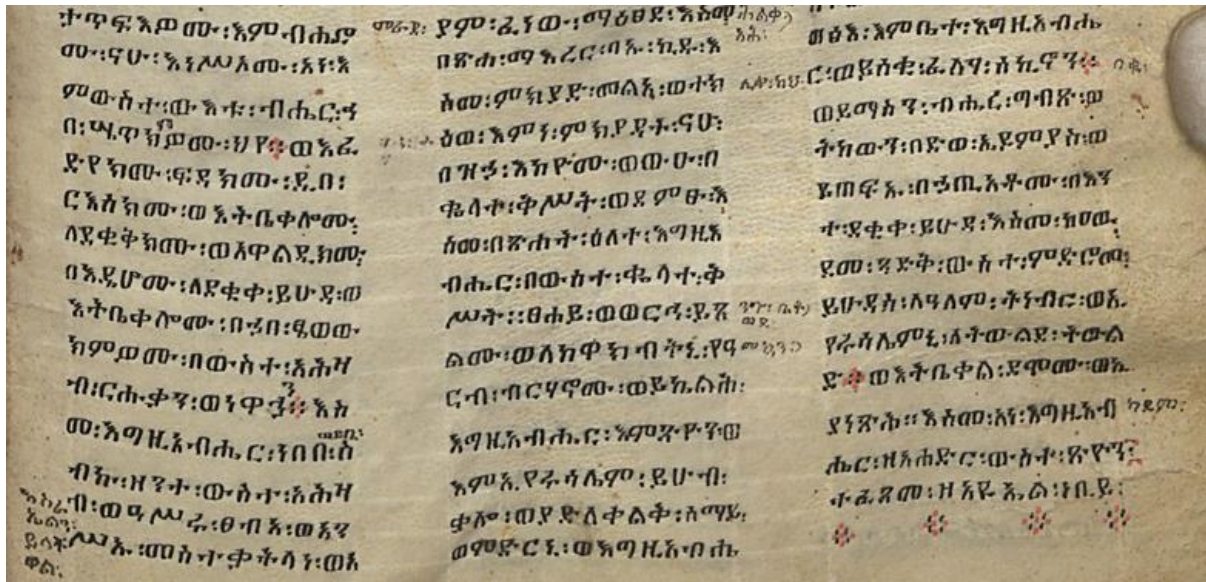 ተጥፍእዎሙ፡እምብሔሮ
ሙ፡ናሁ፡አነሥአሙ፡አነ፡እ
ምውስተ፡ውእቱ፡ብሔር፡ኀ
በ፡ሤጥክምዎሙ፡ህየ፡፡ወእፈ
ድየክሙ፡ፍዳክሙ፡ዲበ፡
ርእስክሙ፡ወእትቤቀሎሙ፡
ለደቂቅክሙ፡ወአዋልዲክሙ፡
በእዴሆሙ፡ለደቂቀ፡ይሁዳ፡ወ
እትቤቀሎሙ፡በኀበ፡ፄወው
ክምዎሙ፡በውስተ፡አሕዛ
ብ፡ርሑቃን፡ወነዋኃን፡፡እስ
መ፡እግዚአብሔር፡ነበበ፡ስ
ብኩ፡ዝንተ፡ውስተ፡አሕዛ
ብ፡ወዓሥሩ፡ፀብአ፡ወአን
ሥኡ፡መስተቃትላነ፡ወአ
ያም፡ፈነው፡ማዕፀደ፡እስመ
በጽሐ፡ማእረር፡ባኡ፡ኪዱ፡እ
ስመ፡ምክያድ፡መልአ፡ወተክ
ዕወ፡እምነ፡ምክያዳቱ፡ናሁ፡
በዝኃ፡እከዮሙ፡ወውሁ፡በ
ቈላተ፡ቅሥት፡ወደምፁ፡እ
ስመ፡በጽሐት፡ዕለተ፡እግዚአ
ብሔር፡በውስተ፡ቈላተ፡ቅ
ሥት፡፡ፀሐይ፡ወወርኅ፡ይጸ
ልሙ፡ወለከዋክብትኒ፡የዓ
ርብ፡ብርሃኖሙ፡ወይኬልሕ፡
እግዚአብሔር፡እምጽዮን፡ወ
እምኢየሩሳሌም፡ይሁብ፡
ቃሎ፡ወያድለቀልቅ፡ሰማይ፡
ወምድርኒ፡ወእግዚአብሔ
ወፅእ፡እምቤተ፡እግዚአብሔ
ር፡ወይሰቂ፡ፈለገ፡ሰኪኖን፡፡
ወይማስን፡ብሔረ፡ግብጽ፡ወ
ትከውን፡በድወ፡ኢዶምያስ፡ወ
ይጠፍኡ፡በኃጢአቶሙ፡በእን
ተ፡ደቂቀ፡ይሁዳ፡እስመ፡ከዐዉ፡
ደመ፡ጻድቅ፡ውስተ፡ምድሮሙ፡
ይሁዳሰ፡ለዓለም፡ትነብር፡ወኢ
የሩሳሌምኒ፡ለትውልደ፡ትውል
ድ፡፡ወእትቤቀል፡ደሞሙ፡ወኢ
ያነጽሕ፡፡እስመ፡አነ፡እግዚአብ
ሔር፡ዘአሐድር፡ውስተ፡ጽዮን፡፡
ተፈጸመ፡ዘኢዩኤል፡ነቢይ፡